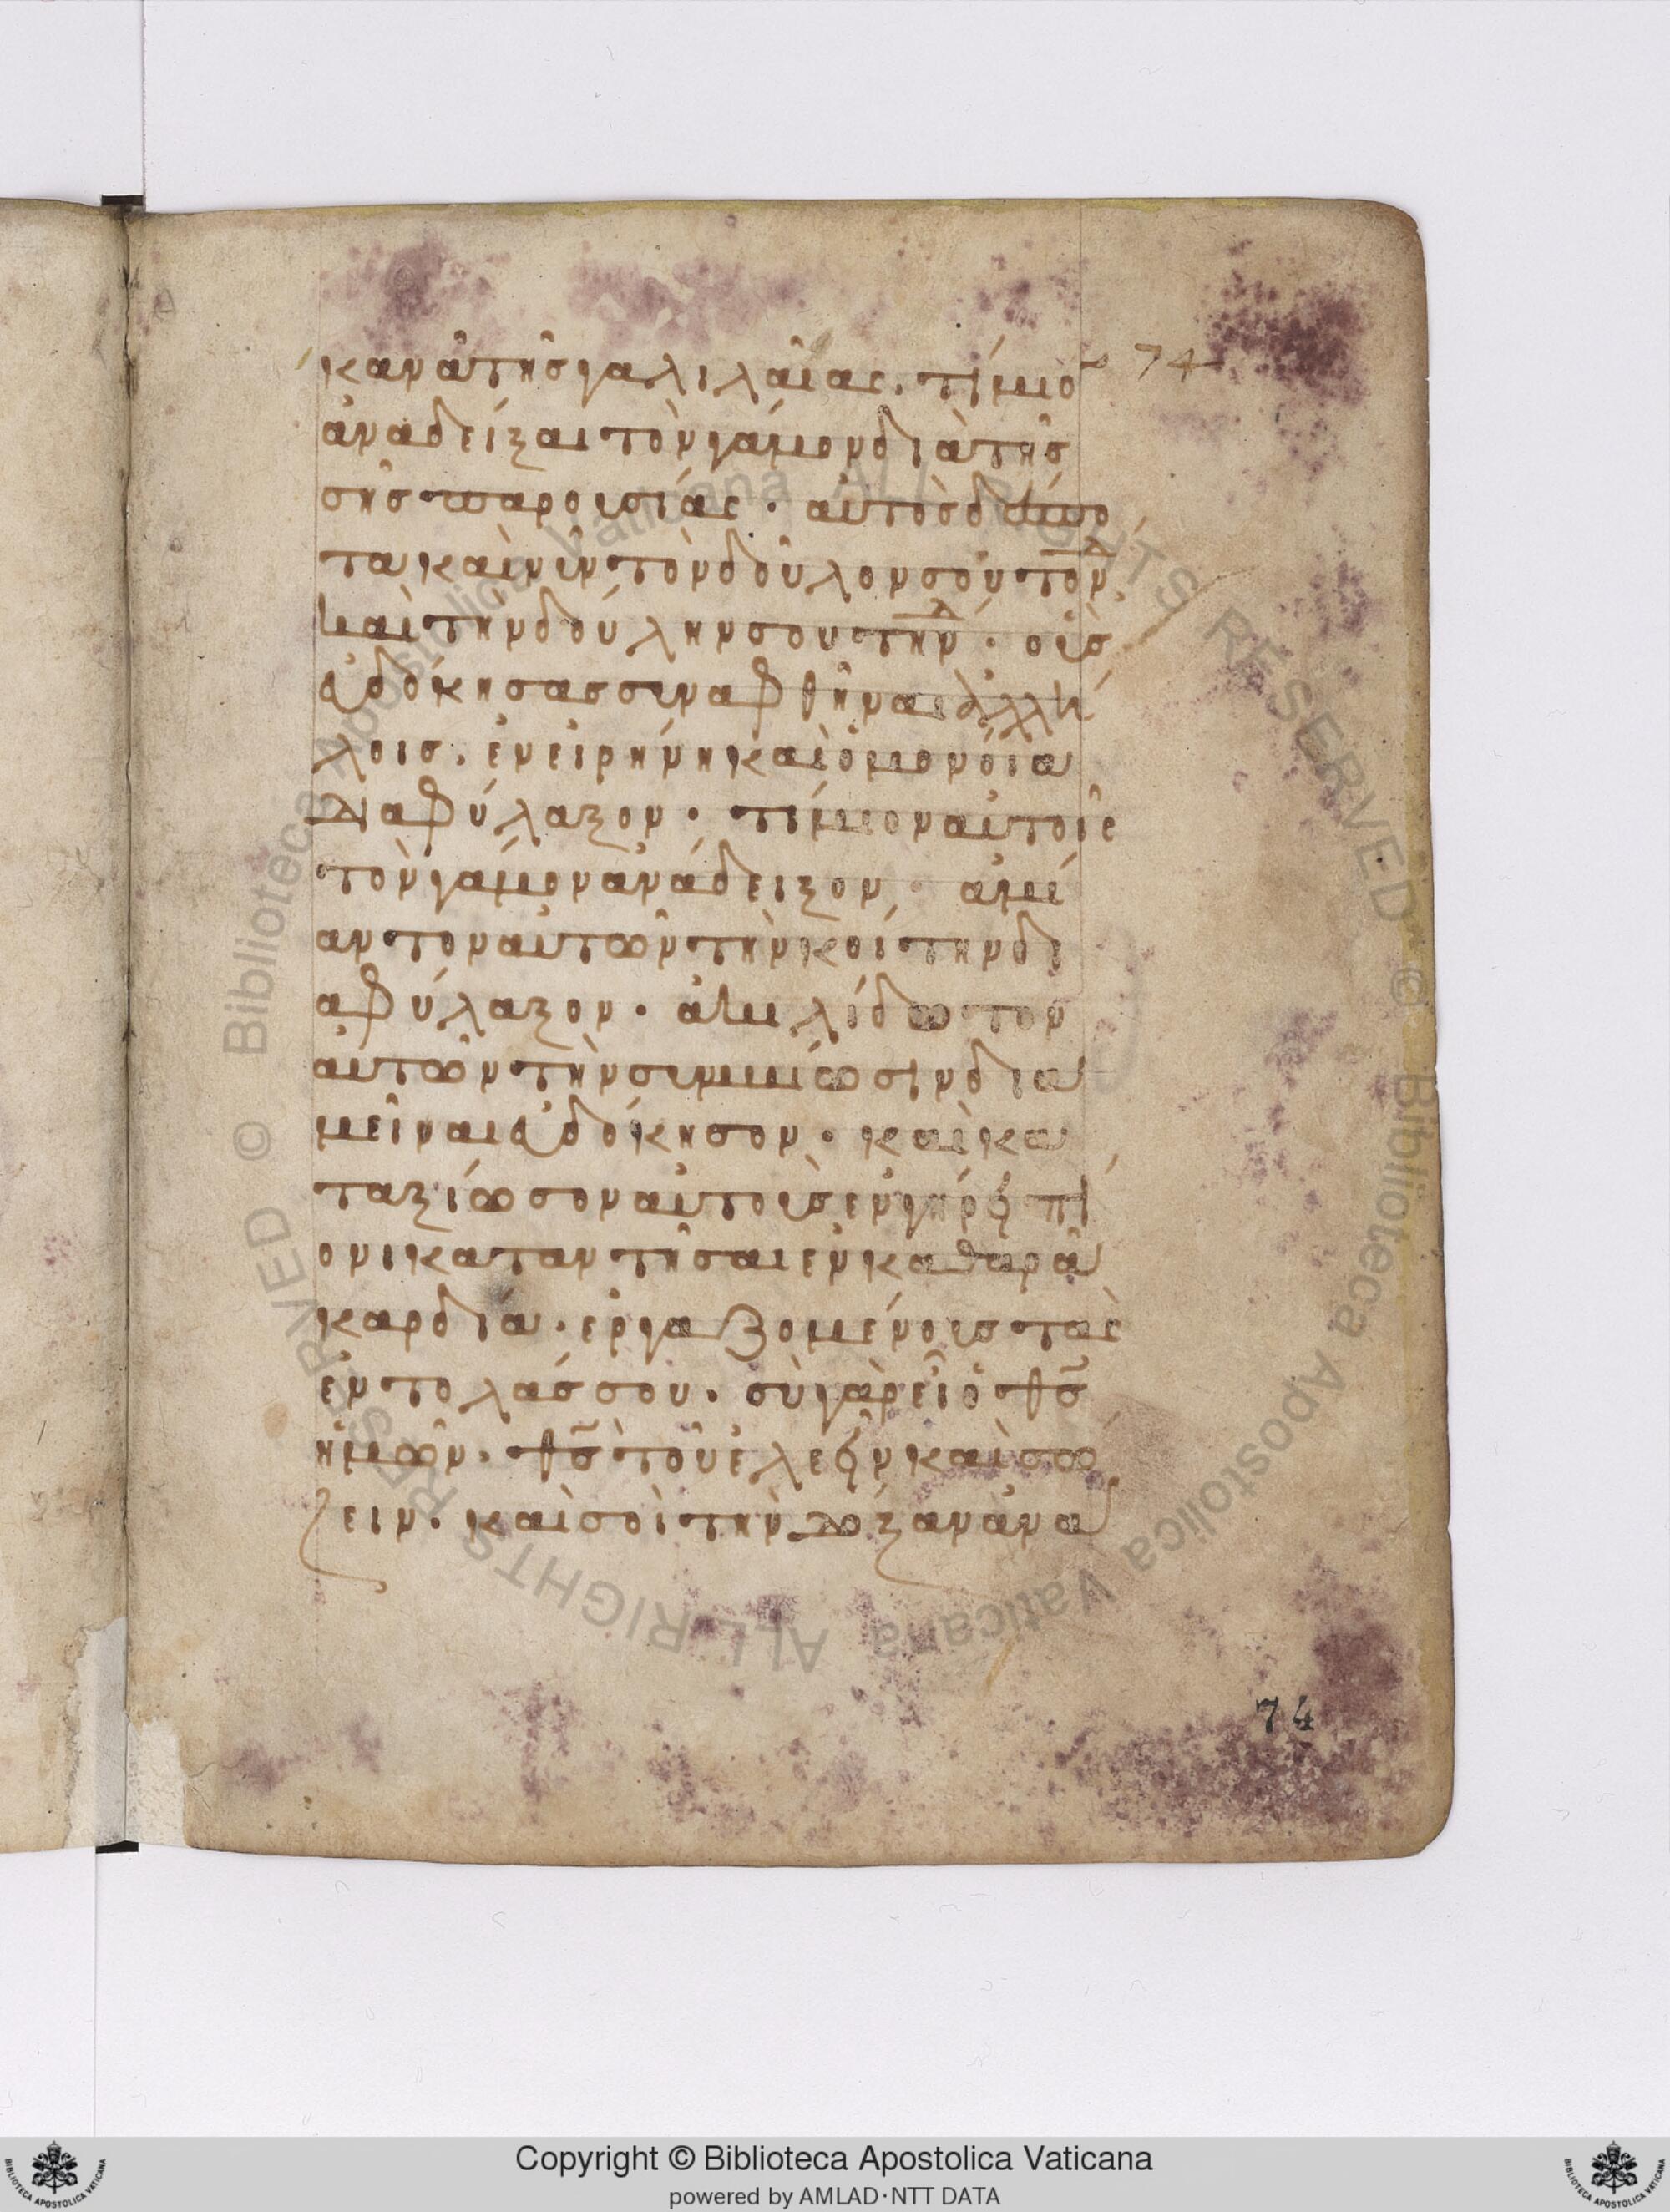 κανᾶ τῆς γαλιλαίας. τίμιο
ἀναδεῖξαι τὸν γάμον διὰ τῆς
σῆς παρουσίας · αὐτὸς δέσπο
τα καὶ νῦν τὸν δοῦλον σου τόνδ
καὶ τὴν δούλην σου τήνδ · οὓς
εὐδόκησας συναφθῆναι ἀλλή
λοις. ἐν εἰρήνη καὶ ὁμονόια
διαφύλαξον · τίμιον αὐτοῖς
τὸν γάμον ἀνάδειξον · ἀμί
αντον αὐτῶν τὴν κοίτην δι
αφύλαξον · ἀκιλίδωτον
αὐτῶν τὴν συμβίωσιν δια
μεῖναι εὐδόκησον · καὶ κα
ταξίωσον αὐτοὺς ἐν γήρει πί
ονι καταντῆσαι ἐν καθαρᾶ
καρδία · ἐργαζομένους τὰς
ἐντολάς σου · σὺ γὰρ εἶ ὁ θς
ἡμῶν · θς τοῦ ἐλεεῖν καὶ σώ
ζειν · καὶ σοὶ τὴν δόξαν ἀνα
74
74
Copyright © Biblioteca Apostolica Vaticana
powered by AMLAD·NTT DATA